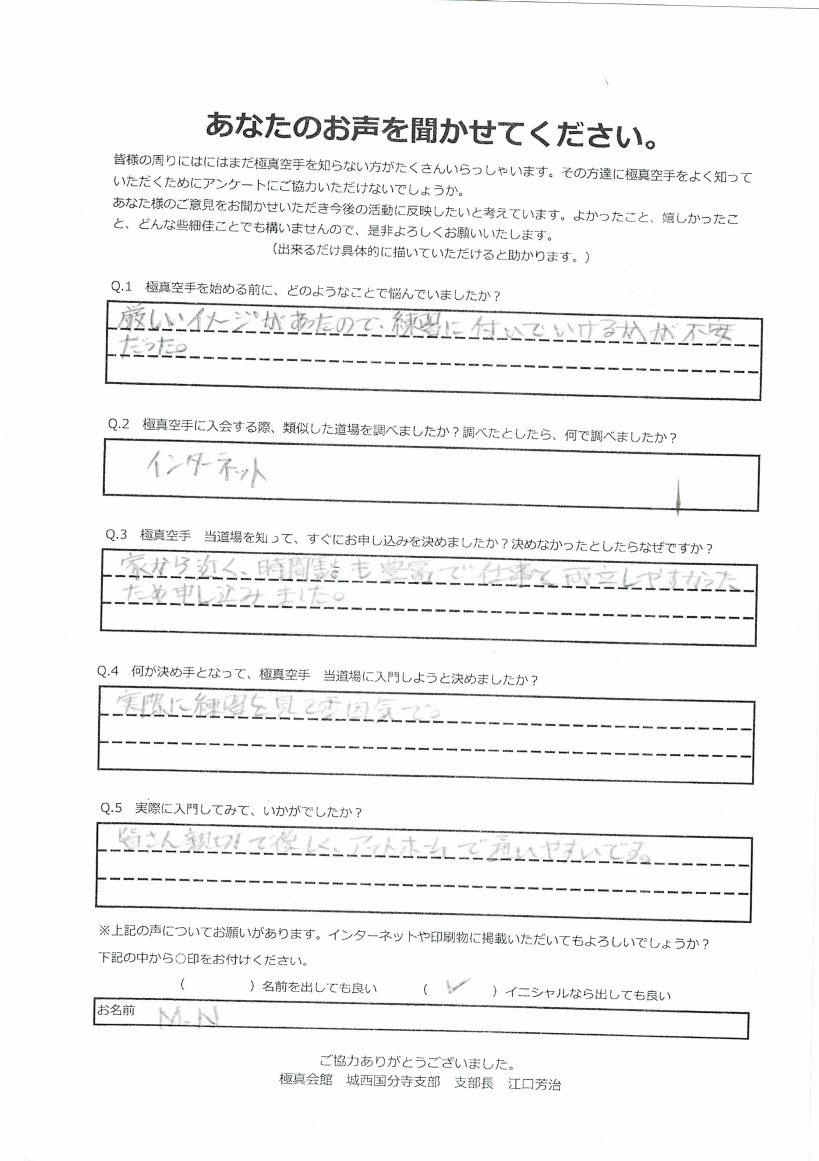 あなたのお声を聞かせてください。
皆様の周りにはにはまだ極真空手を知らない方がたくさんいらっしゃいます。その方達に極真空手をよく知って
いただくためにアンケートにご協力いただけないでしょうか。
あなた様のご意見をお聞かせいただき今後の活動に反映したいと考えています。よかったこと、嬉しかったこ
と、どんな些細佳ことでも構いませんので、是非よろしくお願いいたします。
（出来るだけ具体的に描いていただけると助かります。）
Q.1 極真空手を始める前に、どのようなことで悩んでいましたか？
厳しいイメージがあったので、練習に付いていけるかが不安
だった。
Q.2 極真空手に入会する際、類似した道場を調べましたか？調べたとしたら、何で調べましたか？
インターネット
Q.3 極真空手 当道場を知って、すぐにお申し込みを決めましたか？決めなかったとしたらなぜですか？
家から近く、時間割も豊富で仕事と両立しやすかった
ため申し込みました。
Q.4 何が決め手となって、極真空手 当道場に入門しようと決めましたか？
実際に練習を見て雰囲気で。
Q.5 実際に入門してみて、いかがでしたか？
皆さん親切で優しく、アットホームで通いやすいです。
※上記の声についてお願いがあります。インターネットや印刷物に掲載いただいてもよろしいでしょうか？
下記の中から○印をお付けください。
（ ）名前を出しても良い （ ✓ ）イニシャルなら出しても良い
お名前 M.N
ご協力ありがとうございました。
極真会館 城西国分寺支部 支部長 江口芳治